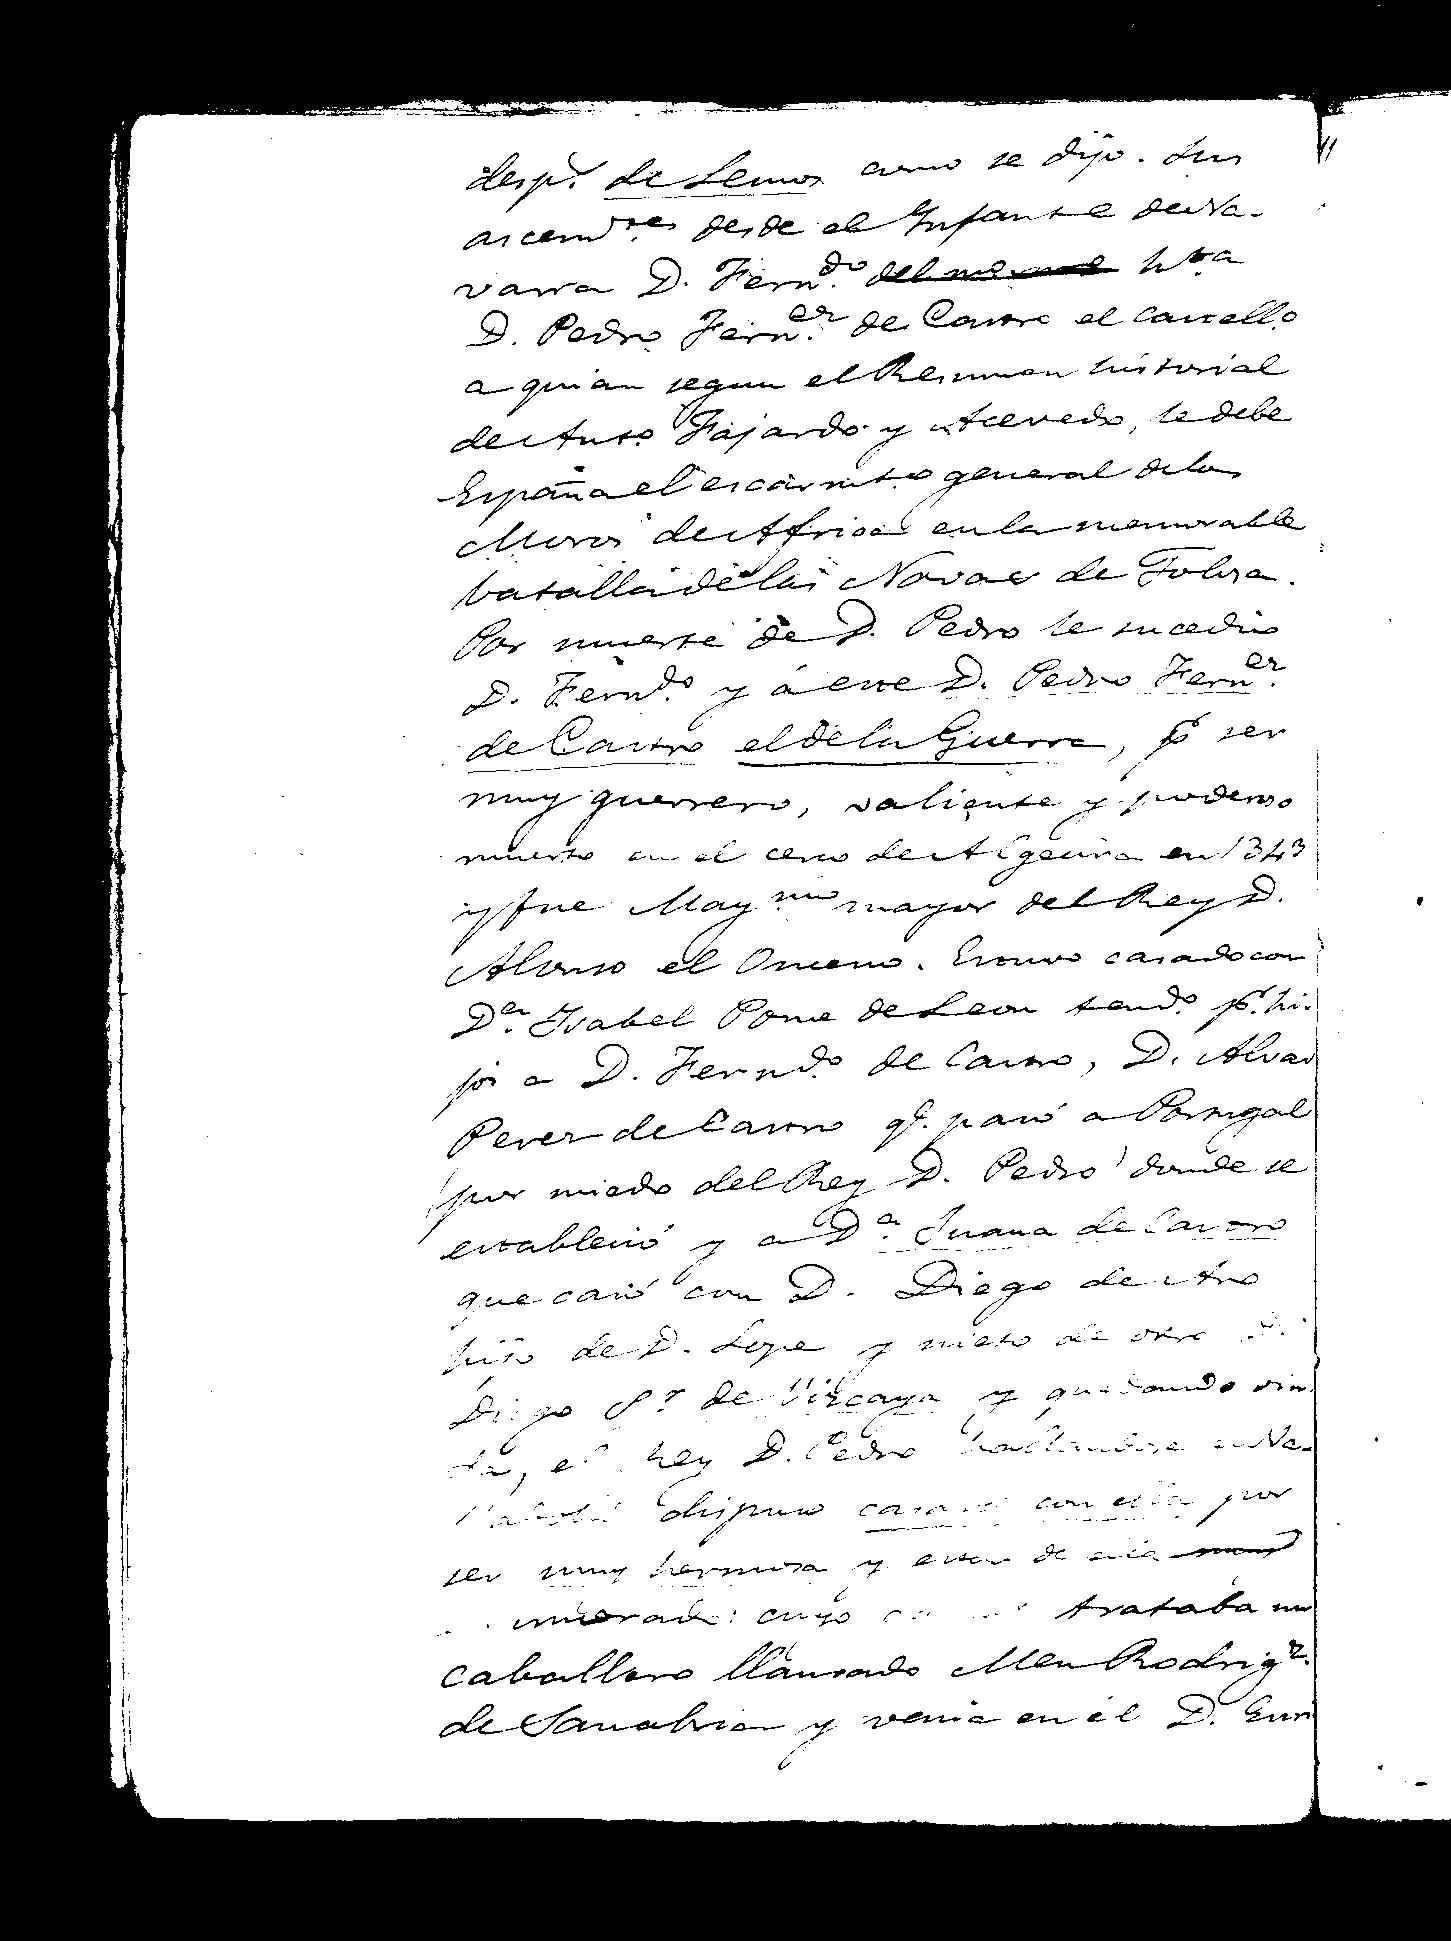 desp.s de Lemos como se dijo. Sus
ascend.tes desde el Infante de Na-
varra D. Fern.do h.ta
D. Pedro Fern.ez de Castro el Castellº
a quien segun el Resumen historial
de Anto Fajardo y Acevedo, le debe
España el escarmto general de los
Moros de Africa en la memorable
batalla de las Navas de Tolosa.
Por muerte de D. Pedro le sucedio
D. Fern.do y á este D. Pedro Fern.ez
de Castro el de la Guerra, p.r ser
muy guerrero, valiente y poderoso
muerto en el cerco de Algecira en 1343
y fue May.mo mayor del Rey D.
Alonso el Onceno. Estuvo casado con
D.a Isabel Ponce de Leon tend.o p.r hi-
jos a D. Fern.do de Castro, D. Alvar
Perez de Castro q.e pasó a Portugal
por miedo del Rey D. Pedro donde se
estableció y a D.a Juana de Castro
que casó con D. Diego de Aro
hijo de D. Lope y nieto de otro D.
Diego S.r de Vizcaya y quedando viu-
da, el Rey D. Pedro hallandose en Va-
lladolid dispuso casarse con ella por
ser muy hermosa y estar de ella
cuyo trataba un
caballero llamado Men Rodrig.z
de Sanabria y venia en él D. Enri